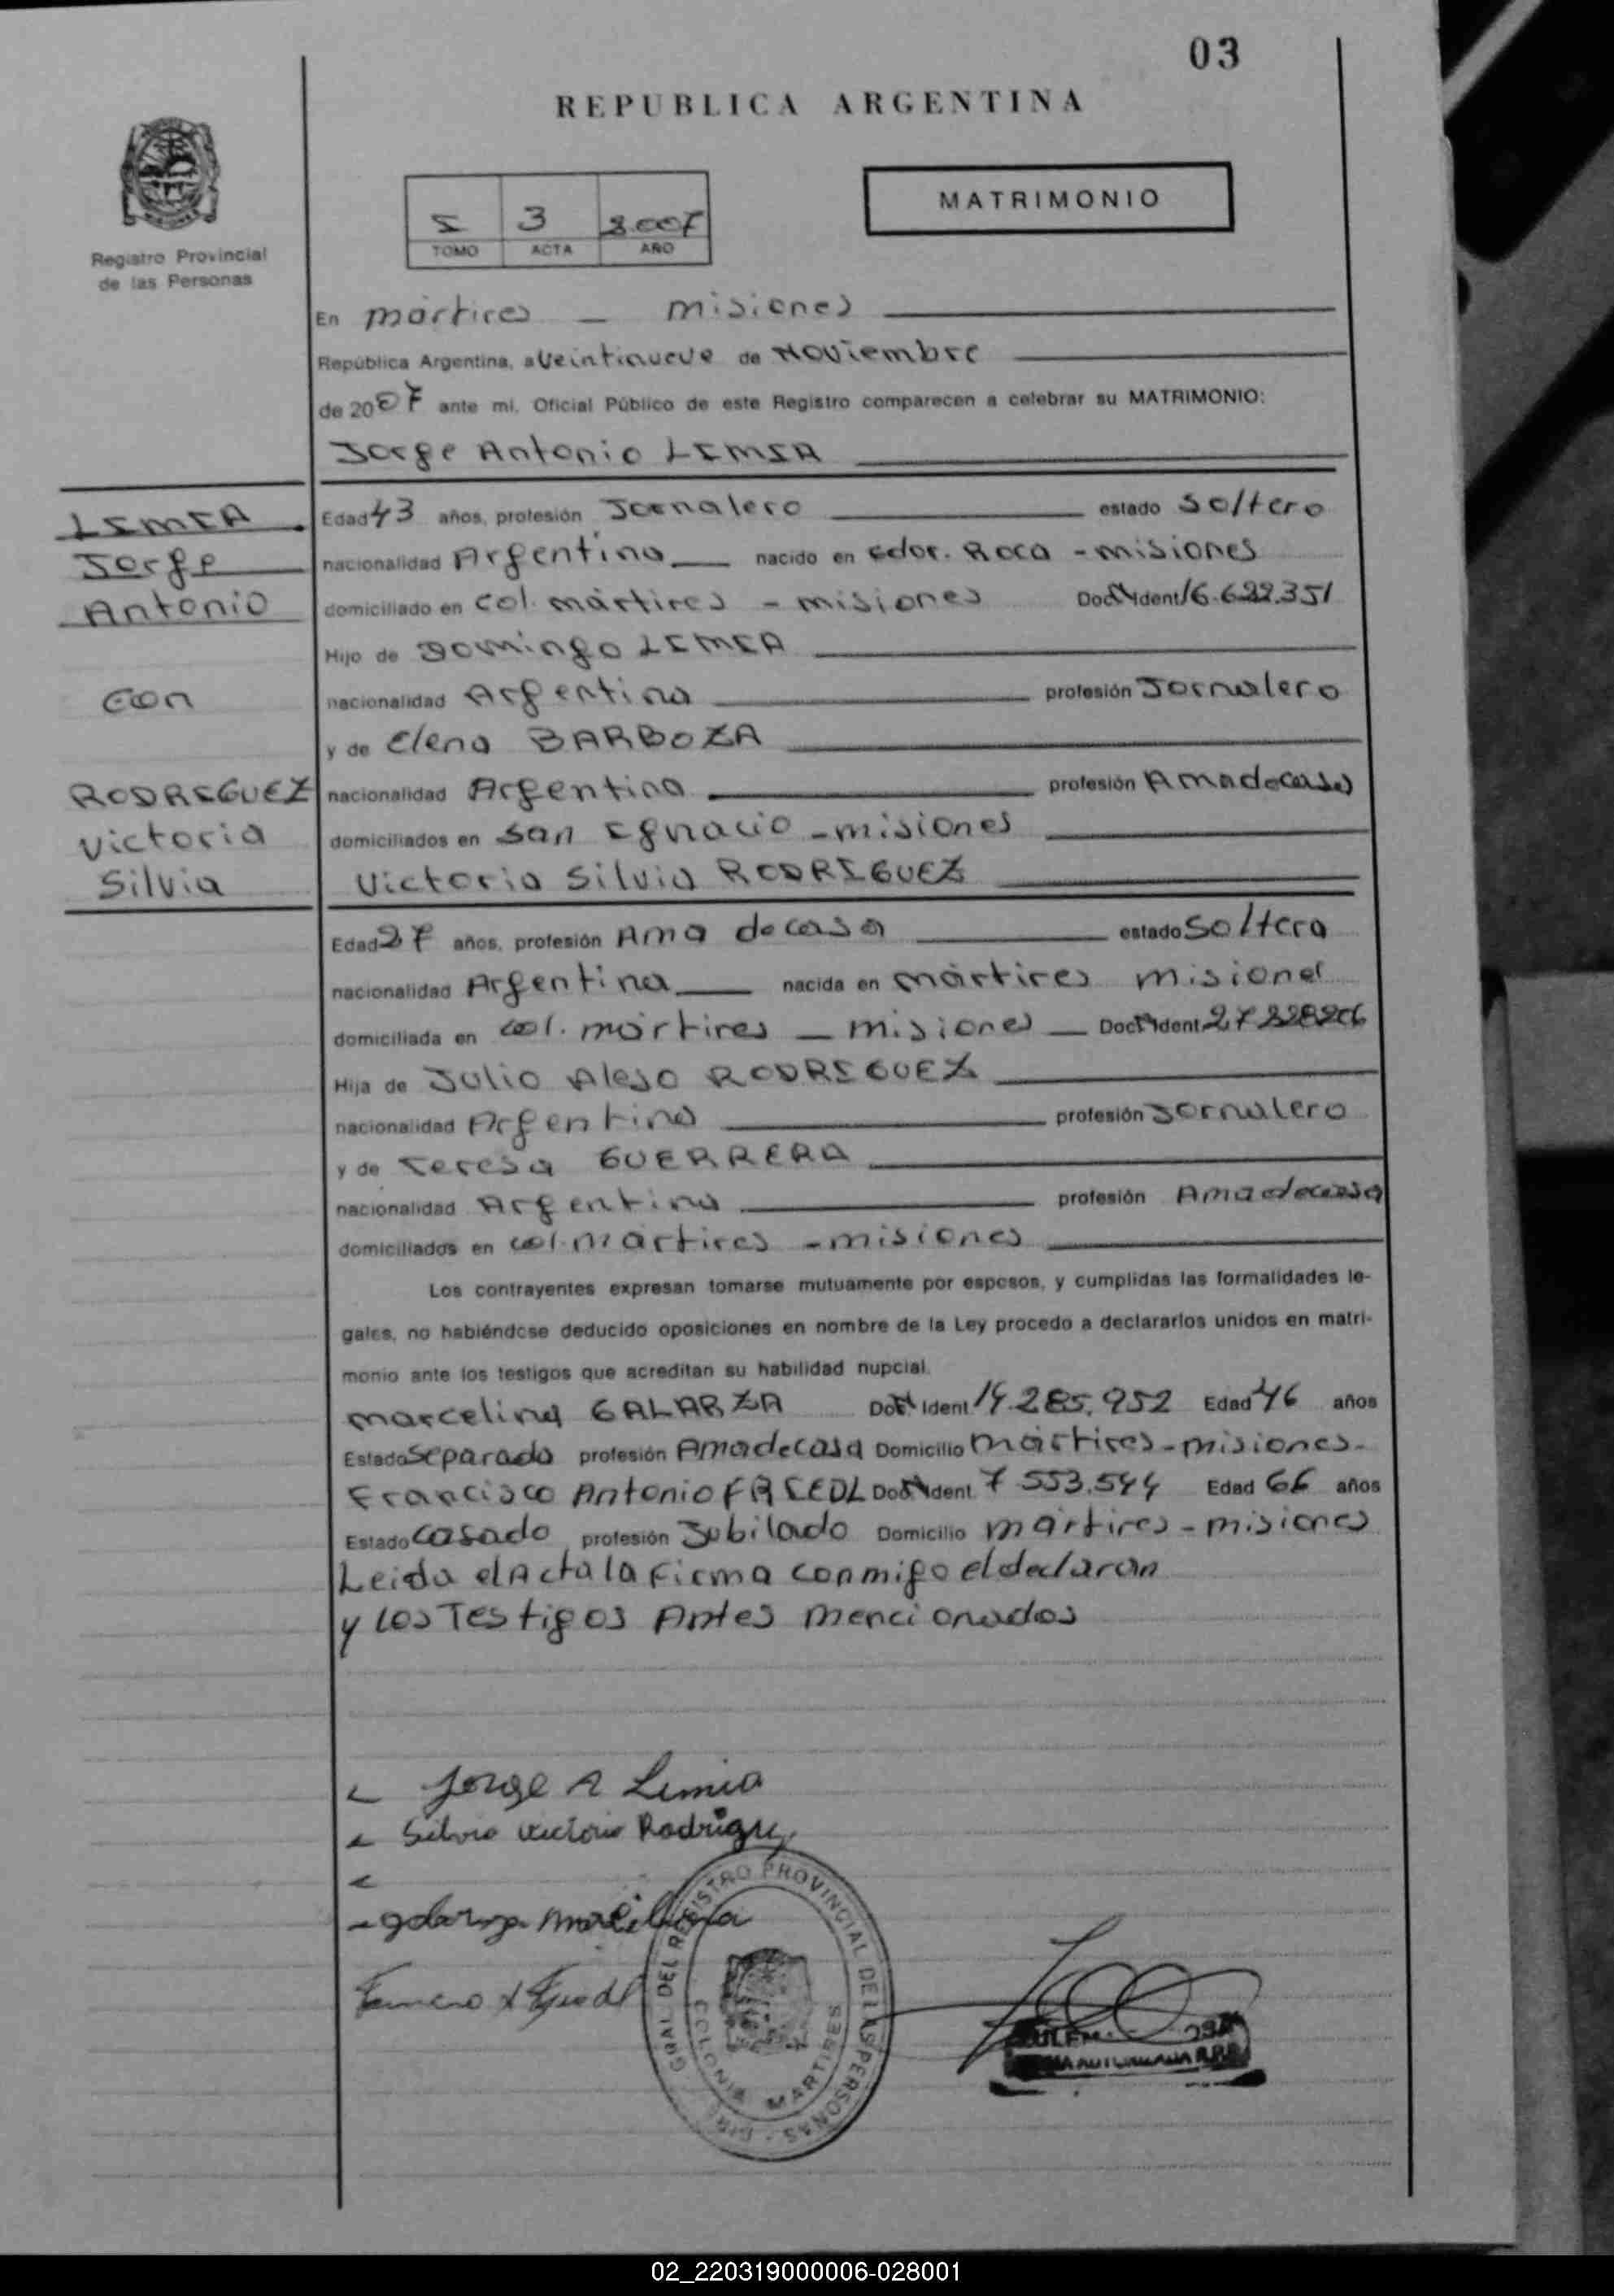 03
REPUBLICA ARGENTINA
MATRIMONIO
I 3 2.007
TOMO ACTA AÑO
Registro Provincial
de las Personas
En mártires - misiones
República Argentina, a Veintinueve de Noviembre
de 2007 ante mi, Oficial Público de este Registro comparecen a celebrar su MATRIMONIO:
Jorge Antonio LIMIA
LIMIA
Jorge
Antonio
con
RODRIGUEZ
Victoria
Silvia
Edad 43 años, profesión Jornalero estado Soltero
nacionalidad Argentina nacido en Gdor. Roca - misiones
domiciliado en col. mártires - misiones Doc. Ident 16.622.351
Hijo de Domingo LIMIA
nacionalidad Argentina profesión Jornalero
y de Elena BARBOZA
nacionalidad Argentina profesión Ama de casa
domiciliados en San Ignacio - misiones
Victoria Silvia RODRIGUEZ
Edad 27 años, profesión Ama de casa estado Soltera
nacionalidad Argentina nacida en mártires misiones
domiciliada en col. mártires - misiones - Doc. Ident
Hija de Julio Alejo RODRIGUEZ
nacionalidad Argentina profesión Jornalero
y de Teresa GUERRERA
nacionalidad Argentina profesión Ama de casa
domiciliados en col. mártires - misiones
Los contrayentes expresan tomarse mutuamente por esposos, y cumplidas las formalidades le-
gales, no habiéndose deducido oposiciones en nombre de la Ley procedo a declararlos unidos en matri-
monio ante los testigos que acreditan su habilidad nupcial.
marcelina GALARZA Doc. Ident. 14.285.952 Edad 46 años
Estado Separada profesión Ama de casa Domicilio mártires - misiones-
Francisco Antonio Doc. Ident. 7 553.544 Edad 66 años
Estado Casado profesión Jubilado Domicilio mártires - misiones
Leida el Acta la Firma conmigo el declaran
y los Testigos Antes mencionados
Jorge A Limia
Silvia Victoria Rodriguez
galarza marcelina
GRAL. DEL REGISTRO PROVINCIAL DE LAS PERSONAS
COLONIA MARTIRES
02_220319000006-028001